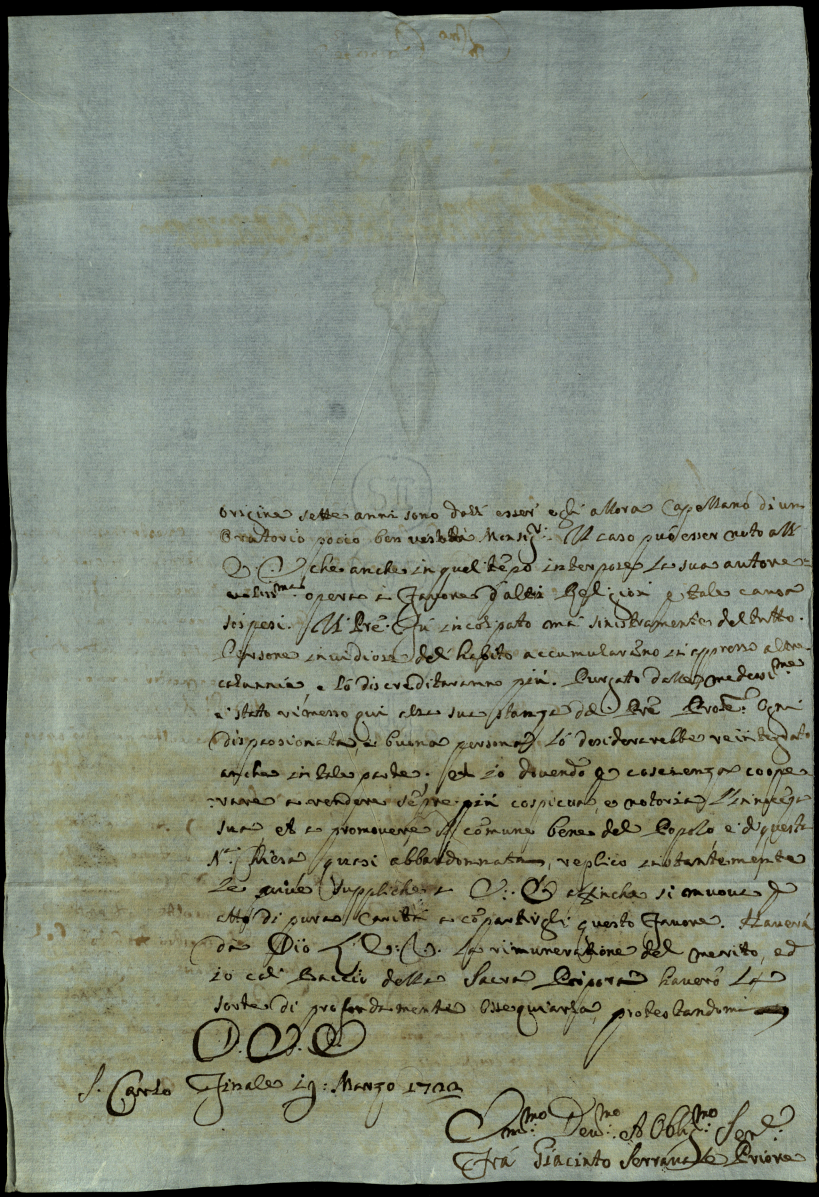 origine sette anni sono dall' esser' egli allora Capellano di un
Oratorio poco ben Monsig.r Il caso può esser noto all'
V. E. che anche in quel tempo interpose la sua autore=
opera a favore d'altri Religiosi p tale causa
sospesi. Il Pre. Fù incolpato mà sinistramente del tutto.
Persone invidiose del habito accumularono in appresso altre
calunnie, e lo discreditaranno più. Purgato dalle medesime
è stato rimesso qui alla sua stanza dal Pre Prole. Ogni
dispassionata, e buona persona lo desiderarebbe reintegrato
anche in tale parte. et io dovendo p coscienza coope
rare a rendere sempre più cospicua, e notoria l'
sua et a promovere il comune bene del Popolo e di questa
N.a quasi abbandonnata, replico instantemente
le mie suppliche a V. E. affinche si muova p
atto di pura Carità a compartirgli questo favore. Haverà
da Dio l'E. V. la rimuneratione del merito, ed
io col Baccio della Sacra Porpora haverò la
sorte di profondamente ossequiarla, protestandomi
D. V. E.
S. Carlo Finale 19: Marzo 1722
Um.mo Dev.mo et Obli.mo Ser.e
Frà Giacinto Serravalle Priore